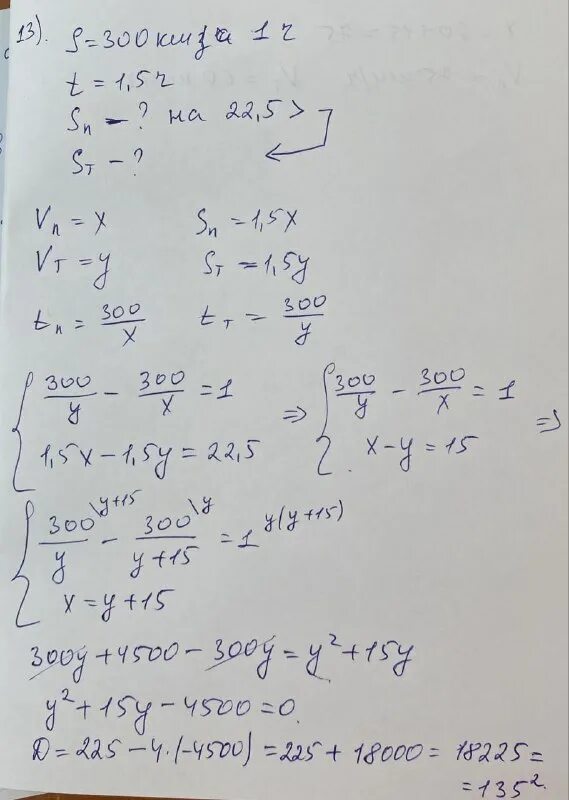 13). S=300 км за 1 ч
t = 1,5 ч
Sп - ? на 22,5 >
Sт - ?
Vп = x Sп = 1,5x
Vт = y Sт = 1,5y
tп = 300/x tт = 300/y
{ 300/y - 300/x = 1 => { 300/y - 300/x = 1 =>
1,5x - 1,5y = 22,5 x - y = 15
{ 300\y+15/y - 300\y/y+15 = 1 y(y+15)
x = y + 15
300y + 4500 - 300y = y² + 15y
y² + 15y - 4500 = 0
D = 225 - 4·(-4500) = 225 + 18000 = 18225 =
= 135².